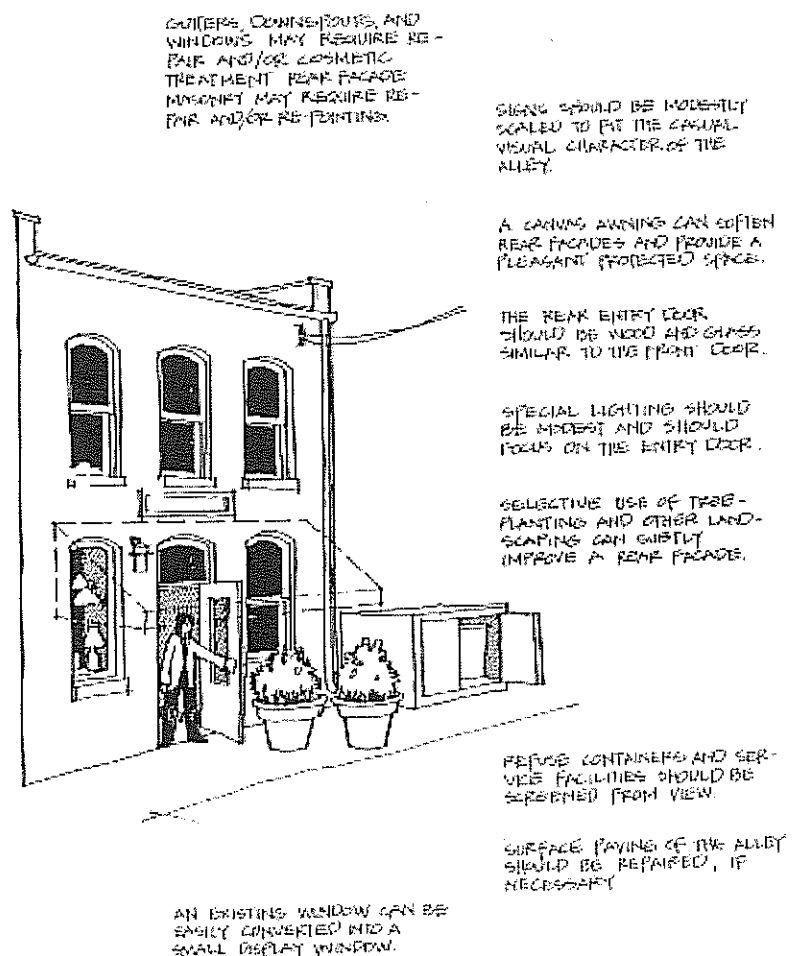 GUTTERS, DOWNSPOUTS, AND
WINDOWS MAY REQUIRE RE-
PAIR AND/OR COSMETIC
TREATMENT REAR FACADE
MASONRY MAY REQUIRE RE-
PAIR AND/OR RE-POINTING.
SIGNS SHOULD BE MODESTLY
SCALED TO FIT THE CASUAL
VISUAL CHARACTER OF THE
ALLEY.
A CANVAS AWNING CAN SOFTEN
REAR FACADES AND PROVIDE A
PLEASANT PROTECTED SPACE.
THE REAR ENTRY DOOR
SHOULD BE WOOD AND GLASS
SIMILAR TO THE FRONT DOOR.
SPECIAL LIGHTING SHOULD
BE MODEST AND SHOULD
FOCUS ON THE ENTRY DOOR.
SELECTIVE USE OF TREE-
PLANTING AND OTHER LAND-
SCAPING CAN SUBTLY
IMPROVE A REAR FACADE.
REFUSE CONTAINERS AND SER-
VICE FACILITIES SHOULD BE
SCREENED FROM VIEW.
SURFACE PAVING OF THE ALLEY
SHOULD BE REPAIRED, IF
NECESSARY
AN EXISTING WINDOW CAN BE
EASILY CONVERTED INTO A
SMALL DISPLAY WINDOW.